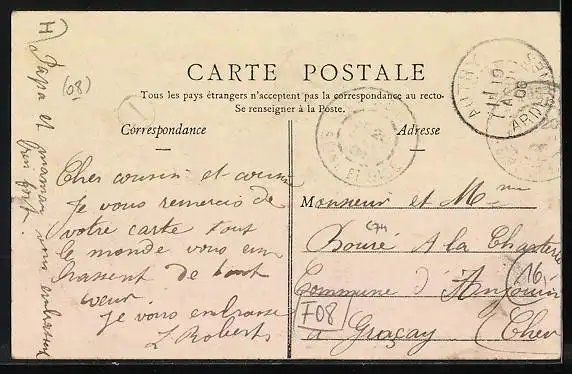 CARTE POSTALE
Tous les pays étrangers n'acceptent pas la correspondance au recto-
Se renseigner à la Poste.
Correspondance
Adresse
Cher cousin et cousine
Je vous remercis de
votre carte tout
le monde vous em
brassent de tout
cœur.
je vous embrasse
L Robert
Papa et maman vous embrassent
bien fort
(08)
1
Monsieur et Mme
Bouré A la Chapterie
Commune d'Anjouin
à Graçay (Cher
F08
16
AUTRY
ARDENNES
08